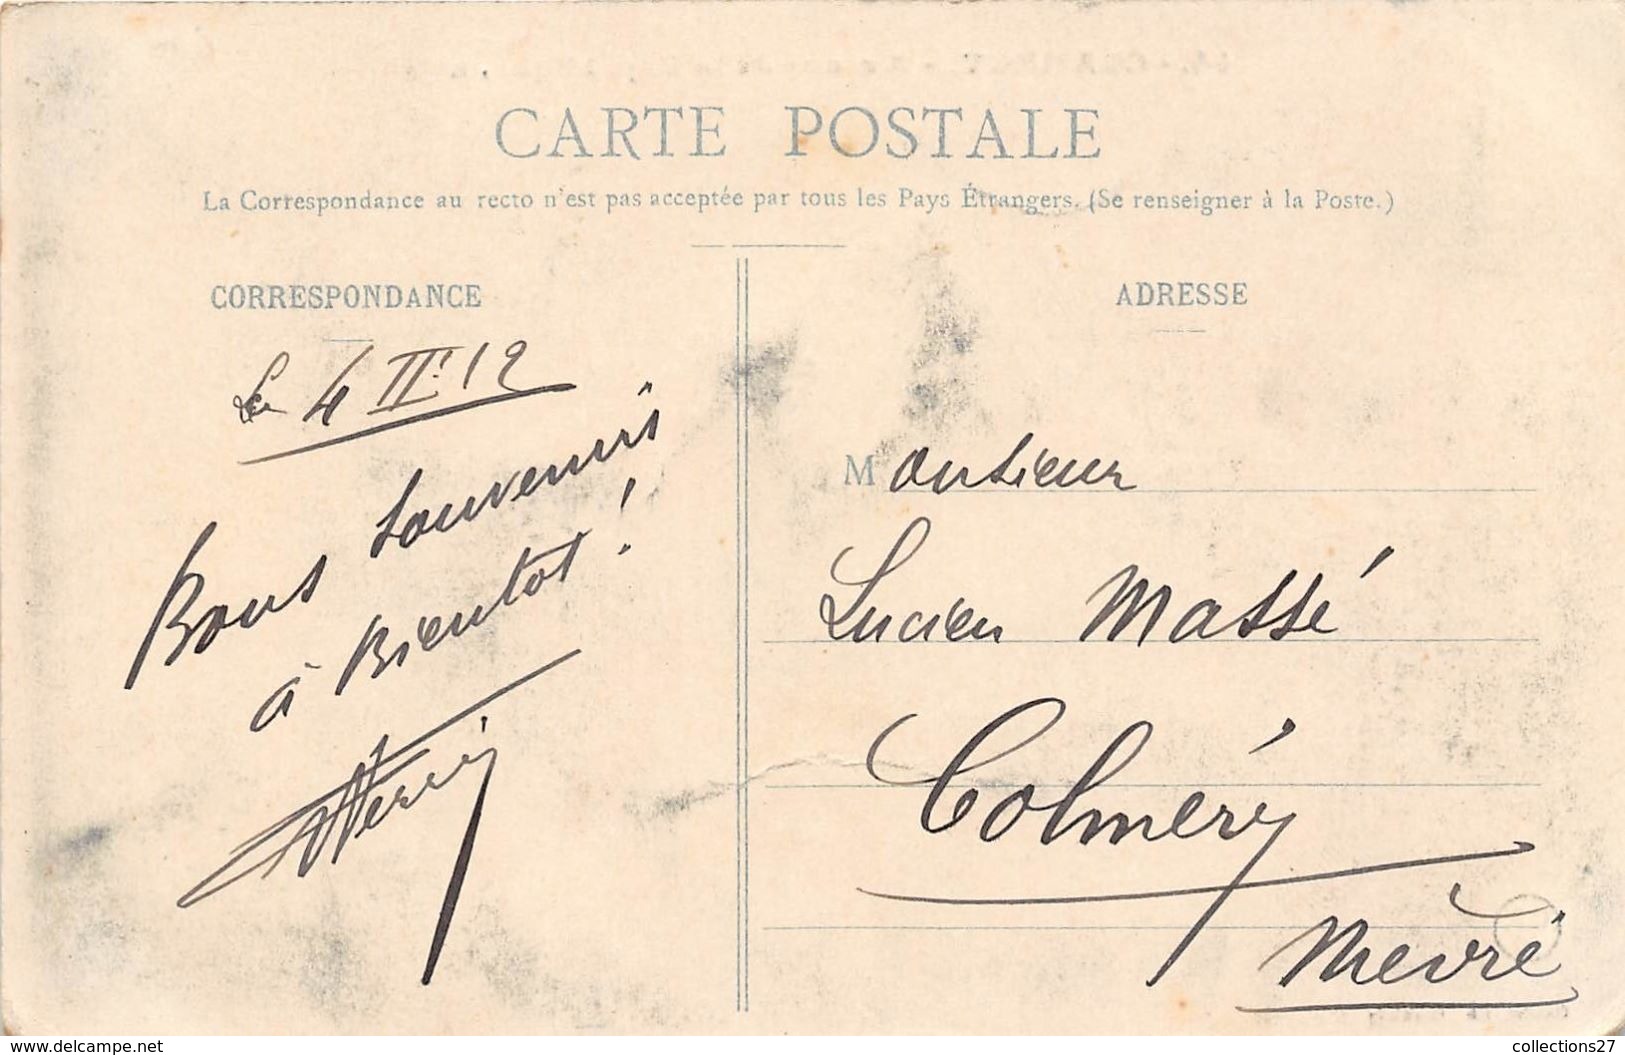 CARTE POSTALE
La Correspondance au recto n'est pas acceptée par tous les Pays Étrangers. (Se renseigner à la Poste.)
CORRESPONDANCE
Le 4 II. 12
Bons souvenirs
à Bientot !
ADRESSE
Monsieur
Lucien Massé
Colméry
Nièvre
www.delcampe.net
collections27